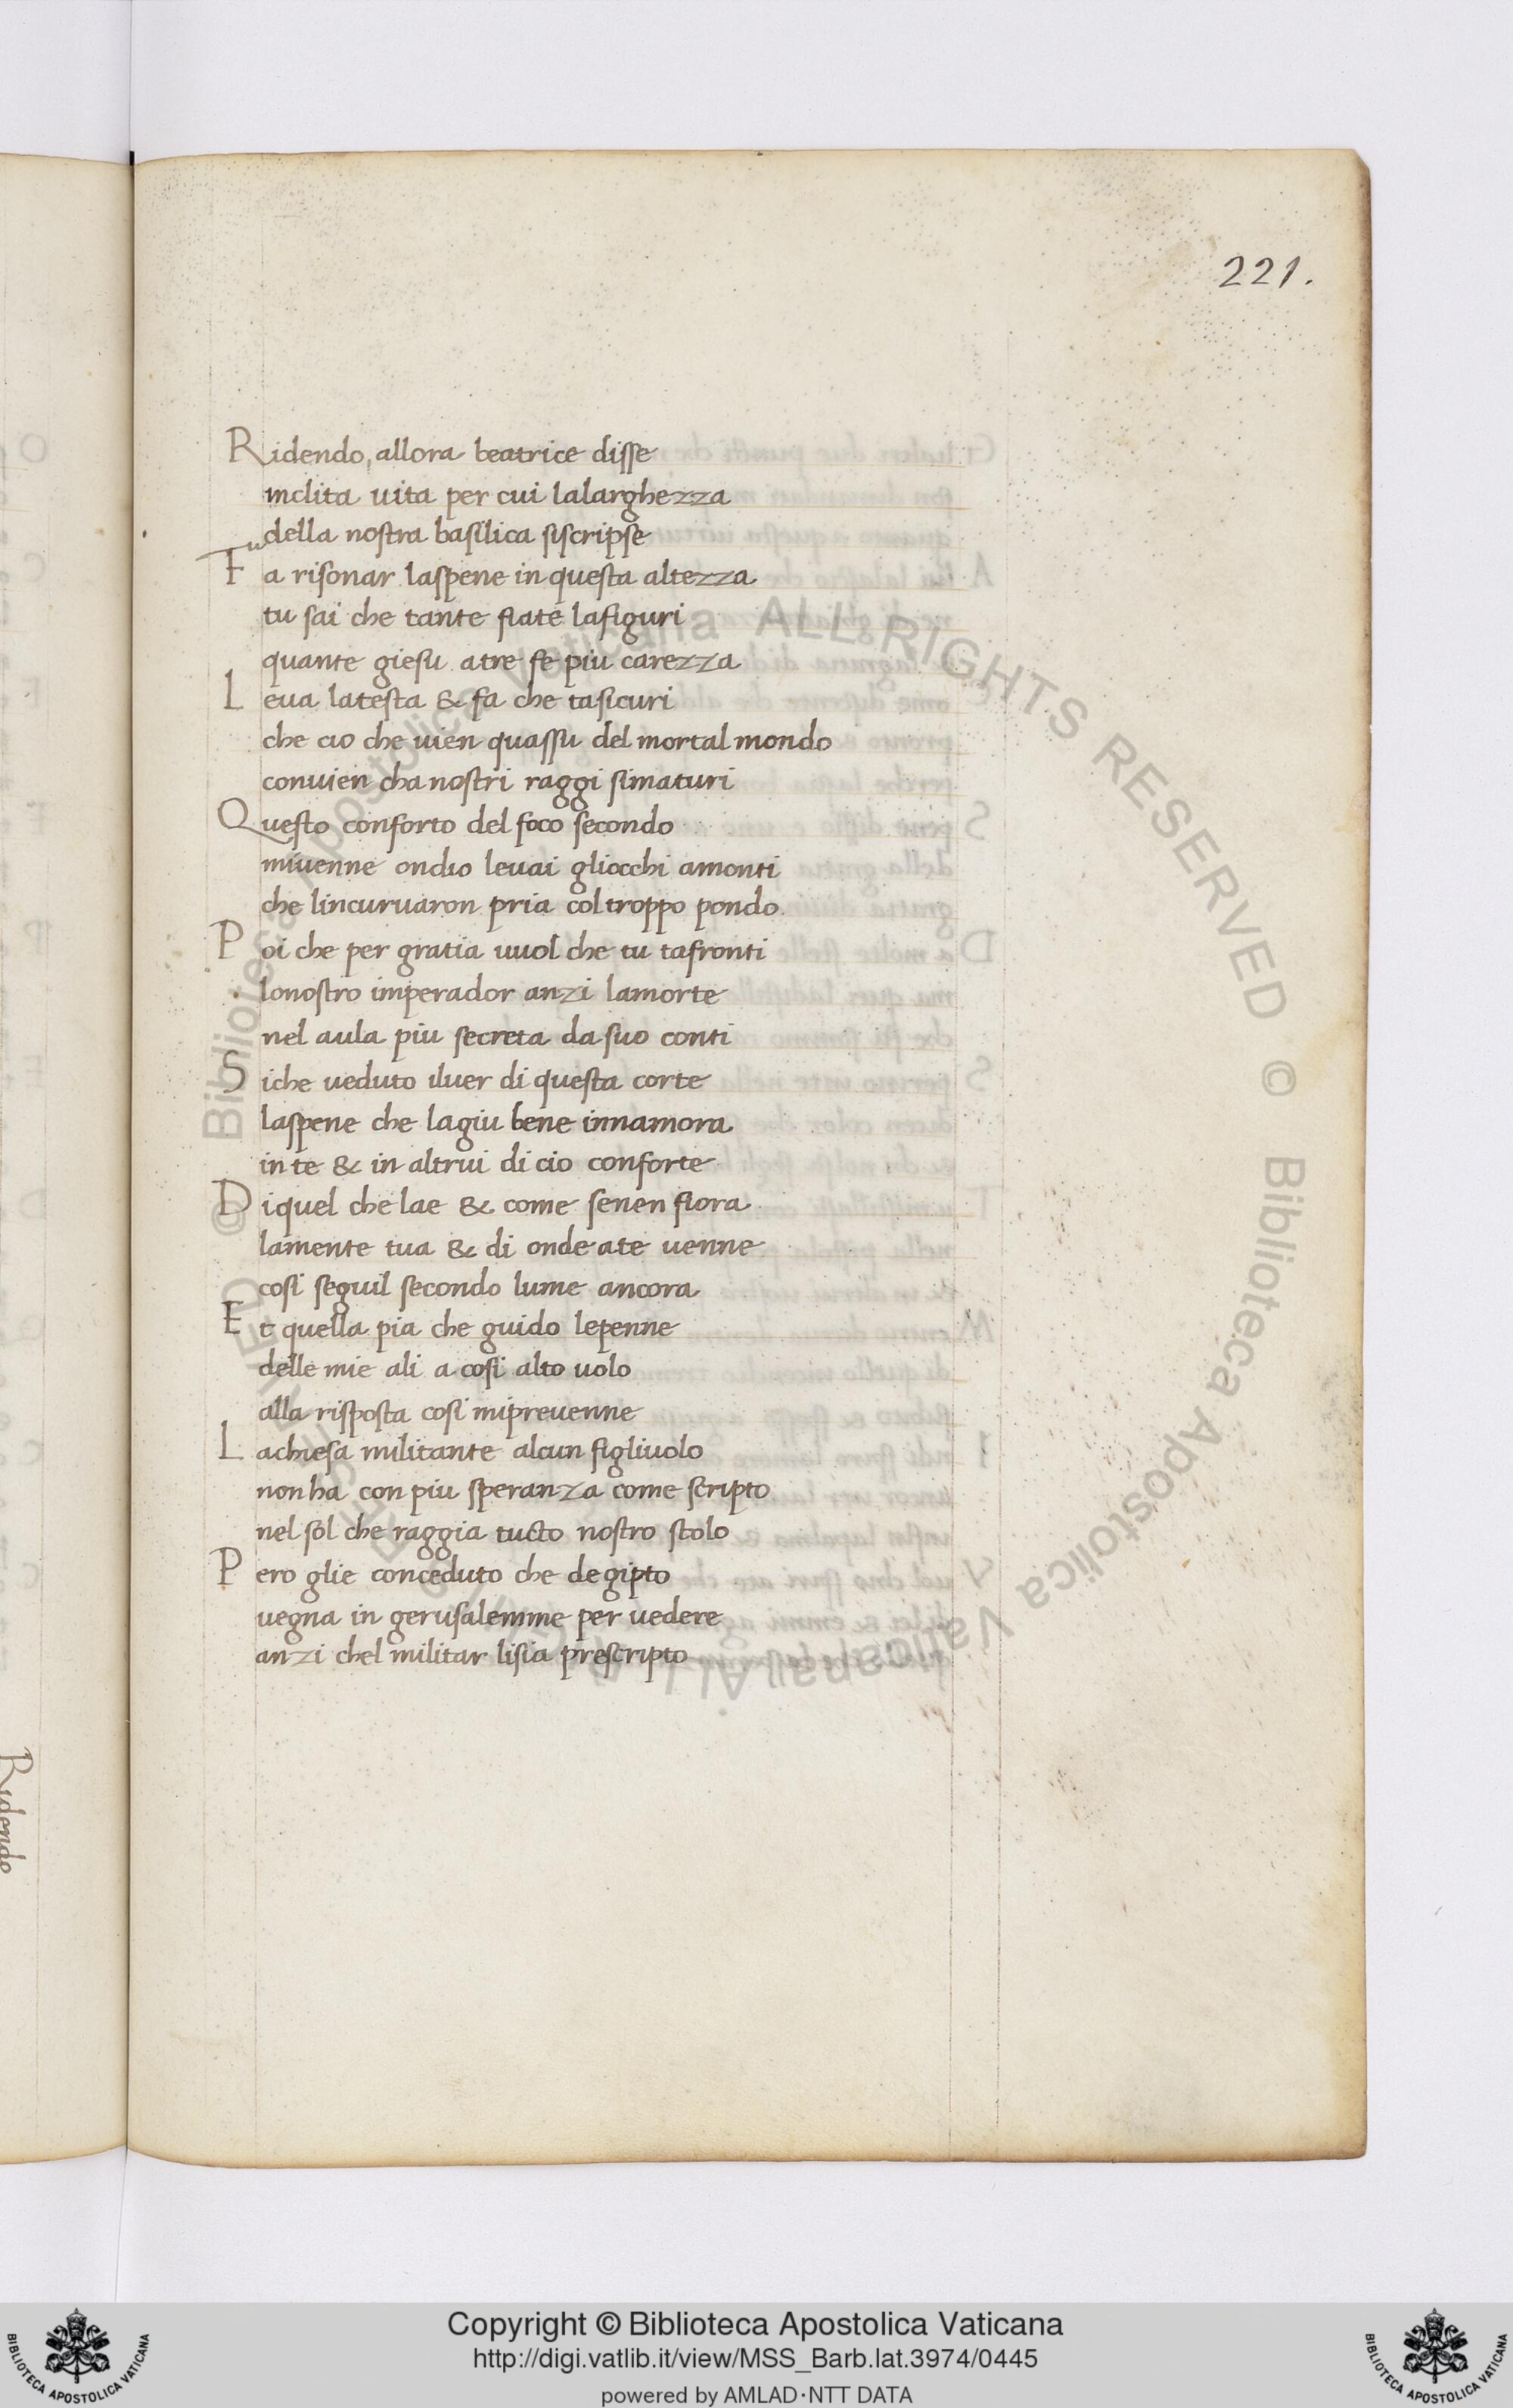 221.
Ridendo allora beatrice disse
inclita uita per cui lalarghezza
della nostra basilica siscripse
Tu
Fa risonar laspene in questa altezza
tu sai che tante fiate lafiguri
quante giesu atre fe piu carezza
Leua latesta & fa che tasicuri
che cio che uien quassu del mortal mondo
conuien cha nostri raggi simaturi
Questo conforto del foco secondo
miuenne ondio leuai gliocchi amonti
che lincuruaron pria coltroppo pondo
Poi che per gratia uuol che tu tafronti
lonostro imperador anzi lamorte
nel aula piu secreta da suo conti
Siche ueduto iluer di questa corte
laspene che lagiu bene innamora
in te & in altrui di cio conforte
Diquel che lae & come senen fiora
lamente tua & di onde ate uenne
cosi seguil secondo lume ancora
Et quella pia che guido lepenne
delle mie ali a cosi alto uolo
alla risposta cosi mipreuenne
Lachiesa militante alcun figliuolo
non ha con piu speranza come scripto
nel sol che raggia tucto nostro stolo
Pero glie conceduto che degipto
uegna in gerusalemme per uedere
anzi chel militar lisia prescripto
Ridendo
© Biblioteca Apostolica Vaticana ALL RIGHTS RESERVED © Biblioteca Apostolica Vaticana ALL RIGHTS RESERVED
Copyright © Biblioteca Apostolica Vaticana
http://digi.vatlib.it/view/MSS_Barb.lat.3974/0445
powered by AMLAD·NTT DATA
BIBLIOTECA APOSTOLICA VATICANA
BIBLIOTECA APOSTOLICA VATICANA